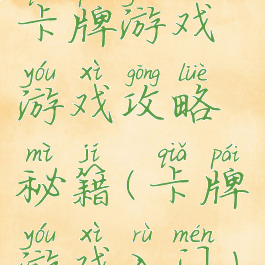 卡牌游戏
yóu xì gōng lüè
游戏攻略
mì jí ( qiǎ pái
秘籍(卡牌
yóu xì rù mén
游戏入门)